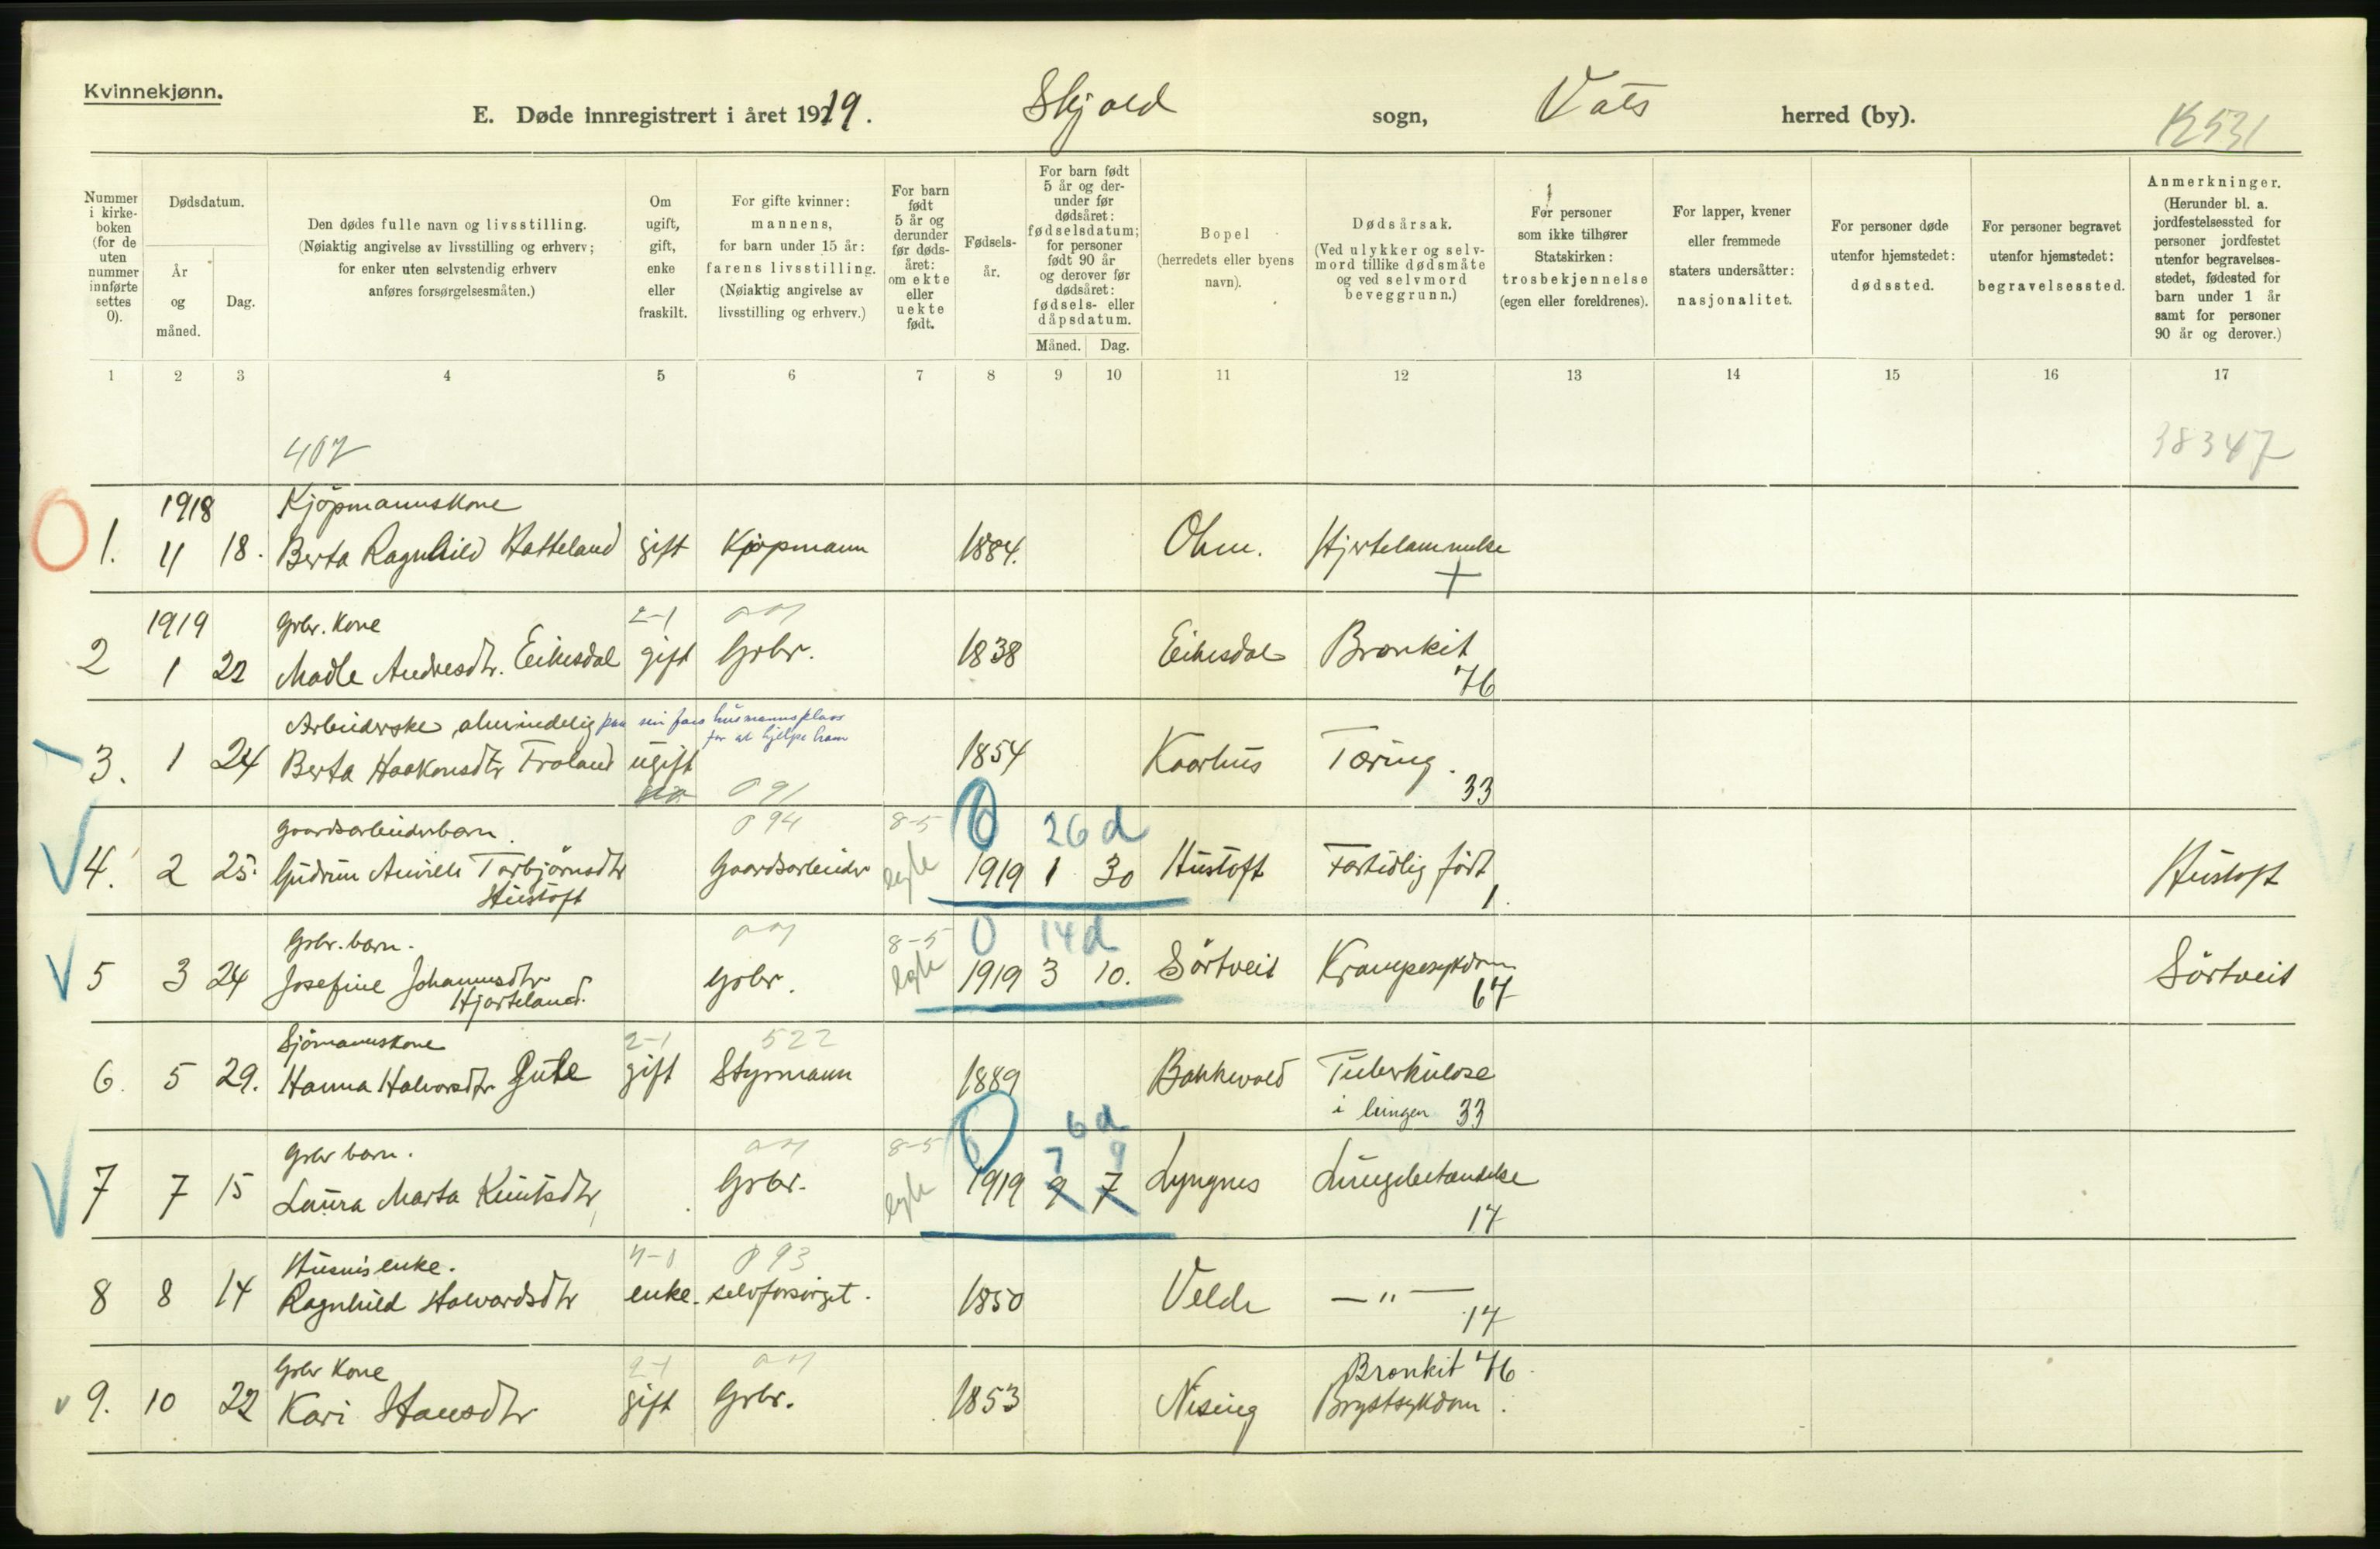 Kvinnekjønn.
E. Døde innregistrert i året 1919. Skjold sogn, Vats herred (by).
K531
Nummer i kirkeboken (for de uten nummer innførte settes 0).
Dødsdatum.
År og måned.
Dag.
Den dødes fulle navn og livsstilling.
(Nøiaktig angivelse av livsstilling og erhverv;
for enker uten selvstendig erhverv
anføres forsørgelsesmåten.)
Om ugift, gift, enke eller fraskilt.
For gifte kvinner:
mannens,
for barn under 15 år:
farens livsstilling.
(Nøiaktig angivelse av
livsstilling og erhverv.)
For barn født 5 år og derunder før dødsåret: om ekte eller uekte født.
Fødselsår.
For barn født 5 år og derunder før dødsåret: fødselsdatum; for personer født 90 år og derover før dødsåret: fødsels- eller dåpsdatum.
Måned. Dag.
Bopel
(herredets eller byens
navn).
Dødsårsak.
(Ved ulykker og selvmord tillike dødsmåte og ved selvmord beveggrunn.)
For personer
som ikke tilhører
Statskirken:
trosbekjennelse
(egen eller foreldrenes).
For lapper, kvener
eller fremmede
staters undersåtter:
nasjonalitet.
For personer døde
utenfor hjemstedet:
dødssted.
For personer begravet
utenfor hjemstedet:
begravelsessted.
Anmerkninger.
(Herunder bl. a.
jordfestelsessted for
personer jordfestet
utenfor begravelses-
stedet, fødested for
barn under 1 år
samt for personer
90 år og derover.)
1 2 3 4 5 6 7 8 9 10 11 12 13 14 15 16 17
407 38347
1918 Kjøpmannskone
1. 11 18. Berta Ragnhild Hatteland gift Kjøpmann 1884. Ohm. Hjertelammelse
1919 Grbr. Kone 2-1
2 1 22 Madle Andresdtr. Eikesdal gift Grbr. 1838 Eikesdal Bronkit
76
Arbeiderske, almindelig paa sin fars husmannsplass
for at hjelpe ham
3. 1 24 Berta Haakonsdtr Froland ugift 1854 Kaarhus Tæring.
091 33
Gaardsarbeiderbarn 094 8-5 0 26 d
4. 2 25. Gudrun Torbjørnsdtr Gaardsarbeider egte 1919 1 30 Hustoft Fortidlig født Hustoft
Hustoft 1.
Grbr. barn. 8-5 0 14 d
5 3 24 Josefine Johannesdtr Grbr. egte 1919 3 10. Sørtveit Krampesykdom Sørtveit
Hjorteland. 67
Sjømannskone 2-1 522
6. 5 29. Hanna Halvorsdtr Gute gift Styrmann 1889 Bakkevold Tuberkulose
i lungen 33
Grbr barn. 8-5 0 6 d
7 9
7 7 15 Laura Marta Knutsdtr Grbr. egte 1919 9 7 Lyngnes Lungebetændelse
17
Husm's enke. 4-0 093
8 8 14 Ragnhild Halvardsdtr enke. selvforsørget. 1850 Velde — " —
17
Grbr Kone 2-1 Bronkit 76
9. 10 22 Kari Hansdtr gift Grbr. 1853 Nising Brystsykdom.